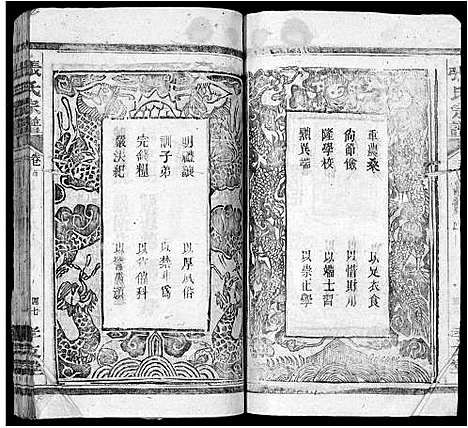 重農桑 以足衣食
尚節儉 以惜財用
隆學校 以端士習
黜異端 以崇正學
明禮讓 以厚風俗
訓子弟 以禁非為
完錢糧 以省催科
嚴法紀 以警愚頑
張氏宗譜
卷首